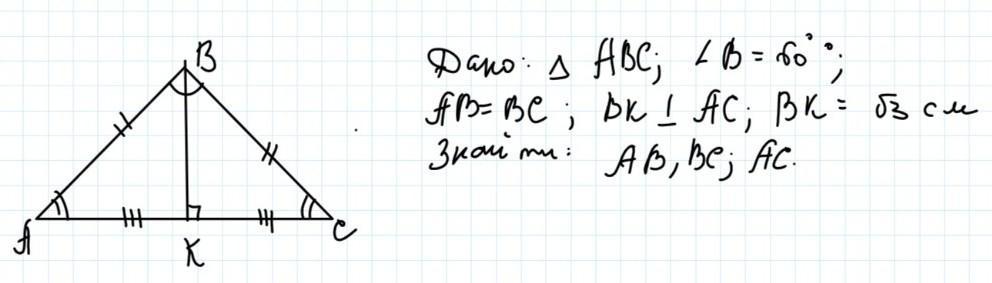 B
Дано: △ ABC; ∠B = 60°;
AB = BC; BK ⊥ AC; BK = √3 см
Знайти: AB, BC; AC.
A
K
C